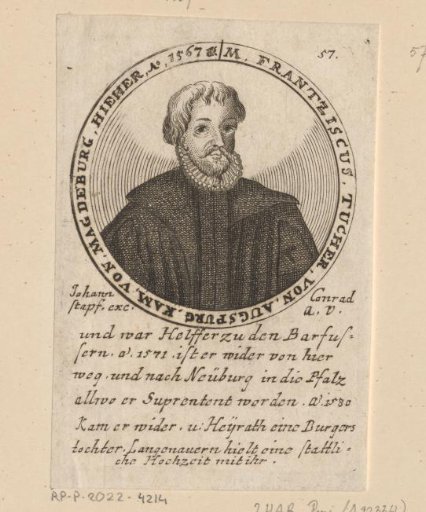 M. FRANTZISCUS. TUCHER. VON. AUGSPURG. KAM. VON. MAGDEBURG. HIEHER. Aº. 1567
57.
Johann Conrad
stapf. exc. a. v.
und war Helffer zu den Barfus-
sern. aº. 1571. ist er wider von hier
weg. und nach Neüburg in die Pfalz
allwo er Suprentent worden. aº 1580
Kam er wider. u: Heÿrath eine Burgers
tochter. Langenauern hielt eine stattli-
che Hochzeit mit ihr.
RP-P-2022-4214